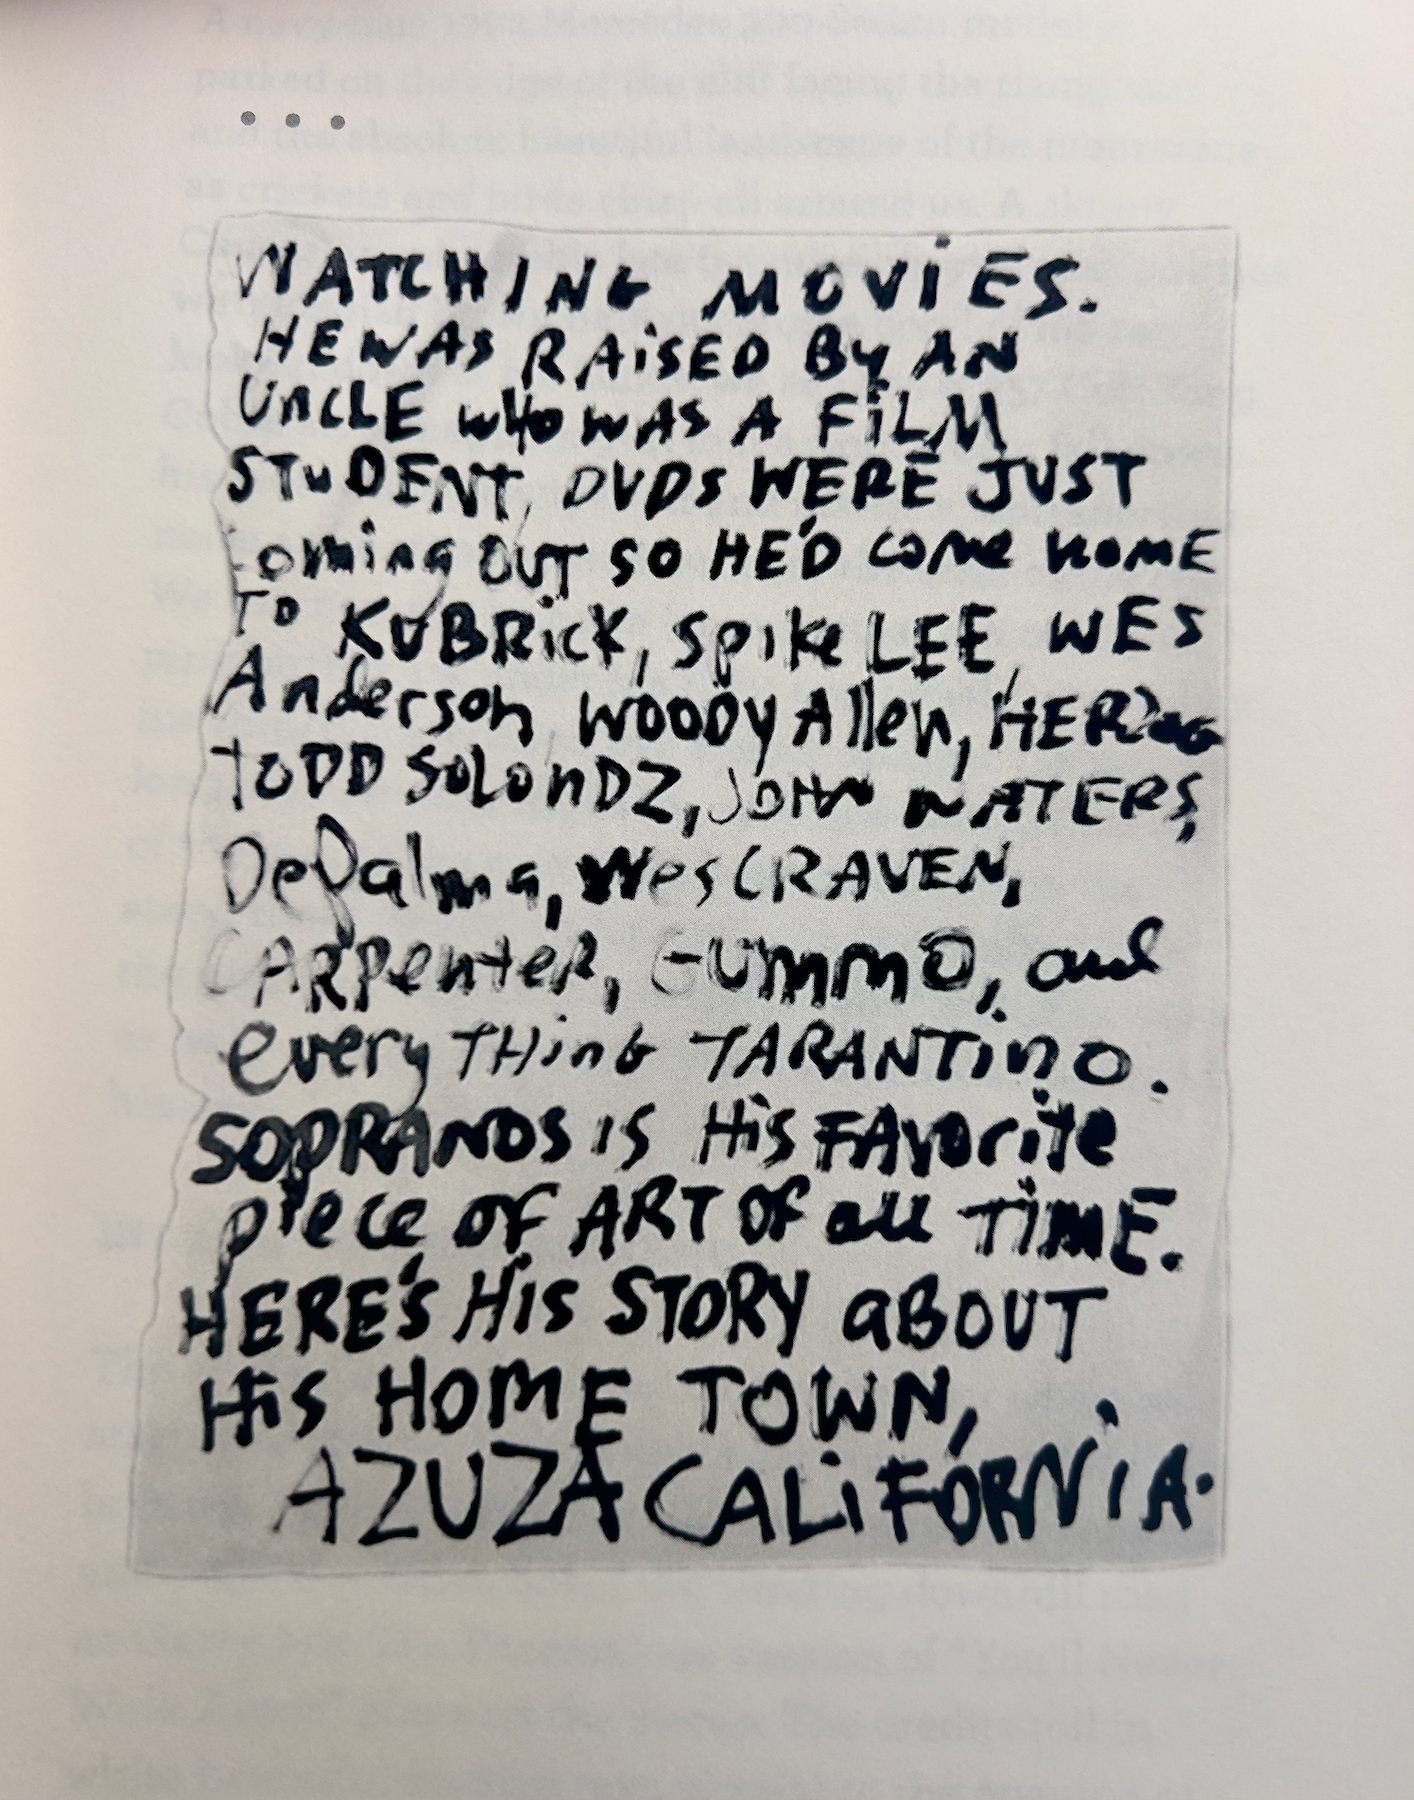 ...
WATCHING MOVIES.
HE WAS RAISED BY AN
UNCLE WHO WAS A FILM
STUDENT, DVDS WERE JUST
coming OUT SO HE'D come HOME
TO KUBRICK, SPIKE LEE, WES
Anderson WOODY Allen, HERZOG
TODD SOLONDZ, JOHN WATERS,
DePalma, Wes CRAVEN,
CARPenteR, GUMMO, and
everyTHinG TARANTino.
SOPRANOS IS HiS FAVorite
piece OF ART OF all TIME.
HERE'S HiS STORY aBOUT
HiS HOME TOWN,
AZUZA CALiFORNiA.